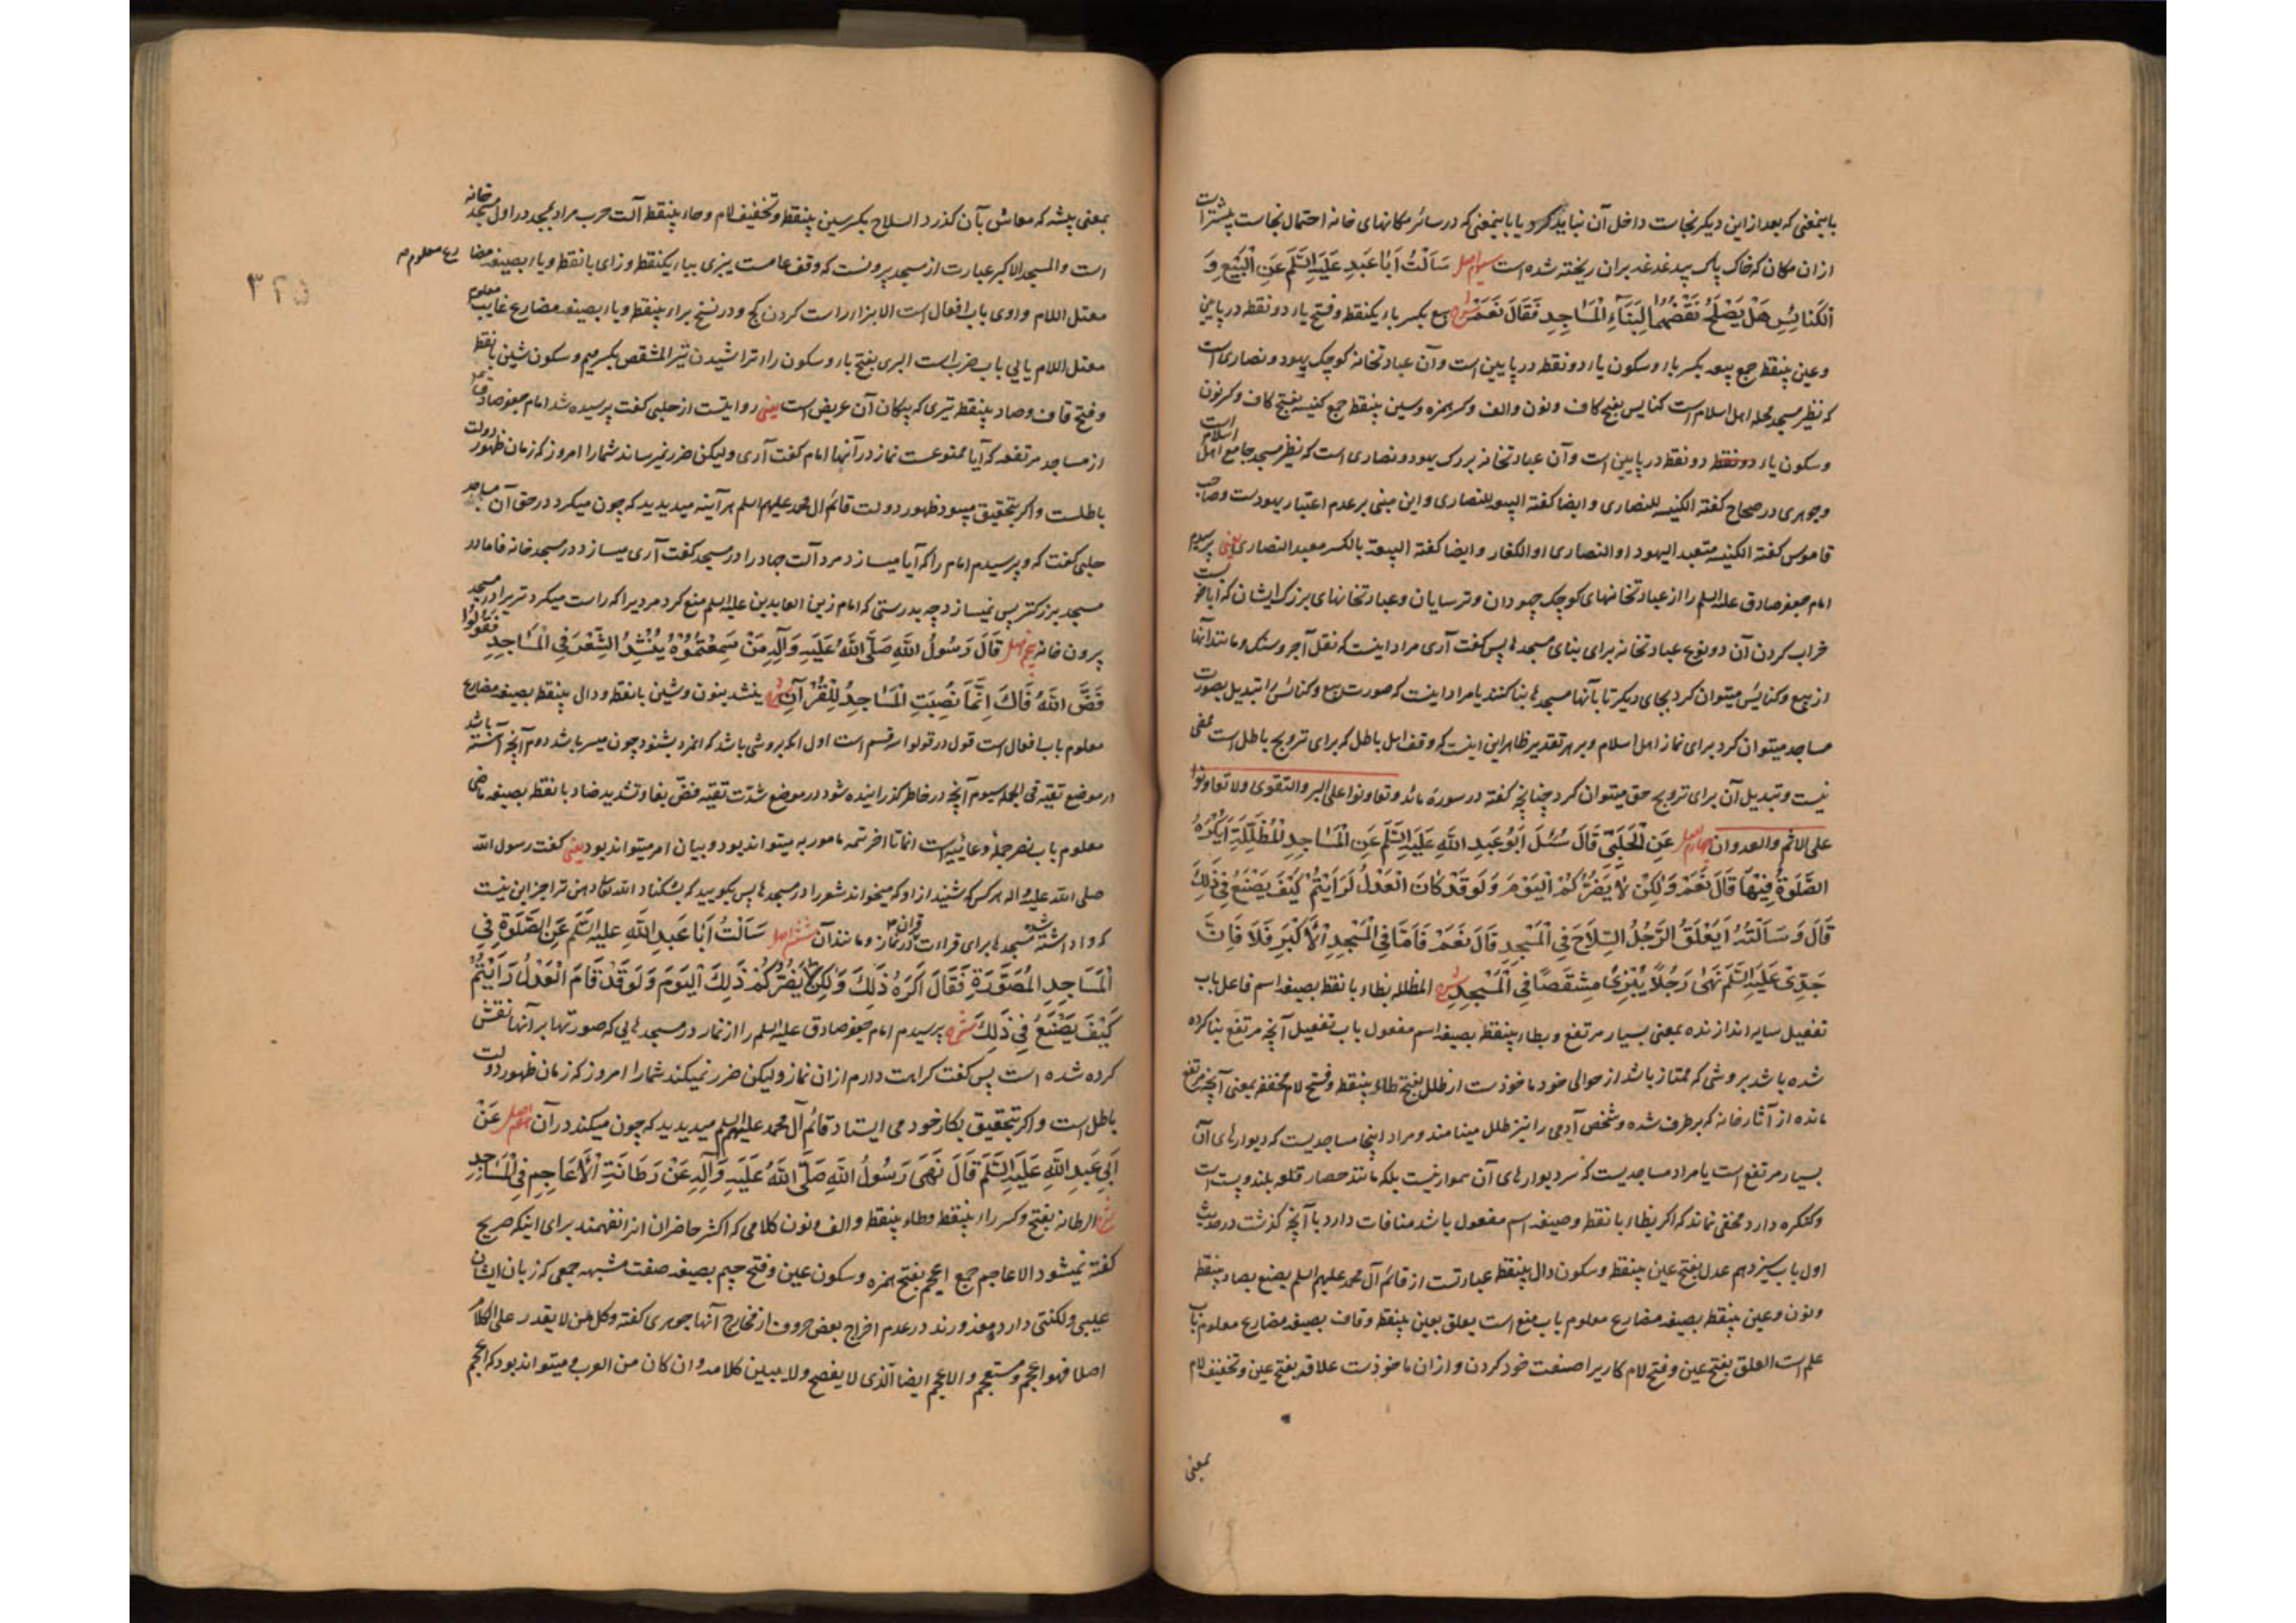 باینمعنی که بعد از این دیکر نجاست داخل آن نباید کرد و یا باینمعنی که در سائر مکانهای خانه احتمال نجاست پیشتر است
از ان مکان که خاک پاک بیدغدغه بران ریخته شده است سیوم اصل سَاَلْتُ اَبَا عَبدِ عَلَیهِ السَّلَم عَنِ الْبِیَعِ وَ
الکَنائِسِ هَلْ یَصْلَحُ نَقْضُهُمَا لِبَنَآءِ الْمَسَاجِدِ فَقَالَ نَعَمْ شرح بیع بکسر باء یکنقطه و فتح یاء دو نقطه در پایین
و عین بینقط جمع بیعه بکسر باء و سکون یاء دو نقطه در پایین است و آن عبادتخانه کوچک یهود و نصاری است
که نظیر مسجد محله اهل اسلام است کنایس بفتح کاف و نون و الف و کسر همزه و سین بینقط جمع کنیسه بفتح کاف و کسر نون
و سکون یاء دونقطه دو نقط در پایین است و آن عبادتخانه بزرک یهود و نصاری است که نظیر مسجد جامع اهل اسلام است
و جوهری در صحاح کفته الکنیسه للنصاری و ایضا کفته البیعه للنصاری و این مبنی بر عدم اعتبار یهودست و صاحب
قاموس کفته الکنیسه متعبد الیهود او النصاری او الکفار و ایضا کفته البیعة بالکسر معبد النصاری یعنی پرسیدم
امام جعفر صادق علیه السلم را از عبادتخانهای کوچک جهودان و ترسایان و عبادتخانهای بزرک ایشان که ایا خوبست
خراب کردن آن دو نوع عبادتخانه برای بنای مسجدها پس کفت آری مراد اینست که نقل آجر و سنک و مانند آنها
از بیع و کنایس میتوان کرد بجای دیکر تا بآنها مسجدها بنا کنند یا مراد اینست که صورت بیع و کنائس را تبدیل بصورت
مساجد میتوان کرد برای نماز اهل اسلام و بر هر تقدیر ظاهر این اینست که وقف اهل باطل که برای ترویج باطل است ممضی
نیست و تبدیل آن برای ترویج حق میتوان کرد چنانچه کفته در سورهٔ مائده وتعاونوا علی البر والتقوی ولا تعاونوا
علی الاثم والعدوان چهارم اصل عَنِ الْحَلَبِیّ قَالَ سُئِلَ اَبُو عَبدِ اللّهِ عَلَیهِ السَّلَم عَنِ الْمَسَاجِدِ الْمُظَلِّلَةِ اَیُکْرَهُ
الصَّلوةُ فِیهَا قَالَ نَعَمْ وَلٰکِنْ لَا یَضُرُّکُمْ الْیَوْمَ وَلَوقَدْ کَانَ الْعَدْلُ لَرَاَیْتُمْ کَیْفَ یَصْنَعُ فِی ذٰلِکَ
قَالَ وَسَاَلْتُهُ اَیَعْلَقُ الرَّجُلُ السِّلَاحَ فِی الْمَسْجِدِ قَالَ نَعَمْ فَاَمَّا فِی الْمَسْجِدِ الْاَکْبَرِ فَلَا فَاِنَّ
جَدِّیْ عَلَیهِ السَّلَم نَهٰی رَجُلًا یُبْزِیْ مِشْقَصًا فِی الْمَسْجِدِ شرح المظلله بظاء با نقط بصیغه اسم فاعل باب
تفعیل سایه اندازنده بمعنی بسیار مرتفع و بطاء بینقط بصیغه اسم مفعول باب تفعیل آنچه مرتفع بنا کرده
شده باشد بروشی که ممتاز باشد از حوالی خود ماخوذست از طلل بفتح طاء بینقط و فتح لام مخففه بمعنی آنچه مرتفع
مانده از آثار خانه که برطرف شده و شخص آدمی را نیز طلل مینامند و مراد اینجا مساجدیست که دیوارهای آن
بسیار مرتفع است یا مراد مساجدیست که سر دیوارهای آن هموار نیست بلکه مانند حصار قلعه بلند و پست است
و کنکره دارد مخفی نماند که اکر بظاء با نقط و صیغه اسم مفعول باشد منافات دارد با آنچه کذشت در حدیث
اول باب سیزدهم عدل بفتح عین بینقط و سکون دال بینقط عبارتست از قائم آل محمد علیهم السلم یصنع بصاد بینقط
و نون و عین بینقط بصیغه مضارع معلوم باب منع است یعلق بعین بینقط و قاف بصیغه مضارع معلوم باب
علم است العلق بفتح عین و فتح لام کاریرا صنعت خود کردن و از ان ماخوذست علاقه بفتح عین و تخفیف لام
بمعنی
بمعنی پیشه که معاش بآن کذرد السلاح بکسر سین بینقط و تخفیف لام و حاء بینقط آلت حرب مراد بمسجد در اول مسجد خانه
است و المسجد الاکبر عبارت از مسجد بیرونست که وقف عامست یبزی بباء یکنقط و زای با نقط و یاء بصیغه مضا رع معلوم
معتل اللام واوی باب افعال است الابزاء راست کردن کج و در نسخ براء بینقط و یاء بصیغه مضارع غایب معلوم
معتل اللام یایی باب ضرب است البری بفتح باء و سکون راء تراشیدن تیر المشقص بکسر میم و سکون شین با نقط
و فتح قاف و صاد بینقط تیری که پیکان آن عریض است یعنی روایتست از حلبی کفت پرسیده شد امام جعفر صادق
از مساجد مرتفعه که آیا ممنوعست نماز در آنها امام کفت آری ولیکن ضرر نمیرساند شما را امروز که زمان ظهور دولت
باطلست و اکر بتحقیق میبود ظهور دولت قائم ال محمد علیهم السلم هر آینه میدیدید که چون میکرد در حق آن مساجد
حلبی کفت که و پرسیدم امام را که آیا میسازد مرد آلت جهاد را در مسجد کفت آری میسازد در مسجد خانه فاما در
مسجد بزرکتر پس نمیسازد چه بدرستی که امام زین العابدین علیه السلم منع کرد مردیرا که راست میکرد تیر را در مسجد
بیرون خانه پنجم اصل قَالَ رَسُولُ اللّهِ صَلَّی اللّهُ عَلَیهِ وَآلِهِ مَنْ سَمِعْتُمُوْهُ یُنْشِدُ الشِّعْرَ فِی الْمَسَاجِدِ فَقُولُوْا
فَضَّ اللّهُ فَاكَ اِنَّمَا نُصِبَتِ الْمَسَاجِدُ لِلْقُرْآنِ شرح ینشد بنون و شین با نقط و دال بینقط بصیغه مضارع
معلوم باب افعال است قول در قولوا سه قسم است اول انکه بروشی باشد که انمرد بشنود چون میسر باشد دوم آنچه آهسته باشد
در موضع تقیه فی الجمله سیوم آنچه در خاطر کذرانیده شود در موضع شدّت تقیه فضّ بفاء و تشدید ضاد با نقط بصیغه ماضی
معلوم باب نصر جمله دعائیه است انما تا اخر تتمه مامور به میتواند بود و بیان امر میتواند بود یعنی کفت رسول الله
صلی الله علیه و اله هر کس که شنید از او که میخواند شعر را در مسجدها پس بکویید که بشکناد الله تعالی دهن ترا جز این نیست
که واداشته شده مسجدها برای قراءت قران در نماز و مانند آن ششم اصل سَاَلْتُ اَبَا عَبدِ اللّهِ علیه السَّلَم عَنِ الصَّلوةِ فِی
الْمَسَاجِدِ الْمُصَوَّرَةِ فَقَالَ اَکْرَهُ ذٰلِكَ وَلٰکِنْ لَا یَضُرُّکُمْ ذٰلِكَ الْیَوْمَ وَلَوقَدْ قَامَ الْعَدْلُ رَاَیْتُمْ
کَیْفَ یَصْنَعُ فِی ذٰلِكَ شرح پرسیدم امام جعفر صادق علیه السلم را از نماز در مسجدهایی که صورتها بر آنها نقش
کرده شده است پس کفت کراهت دارم از ان نماز ولیکن ضرر نمیکند شما را امروز که زمان ظهور دولت
باطل است و اکر بتحقیق بکار خود می ایستاد قائم آل محمد علیهم السلم میدیدید که چون میکند در آن هفتم اصل عَنْ
اَبِی عَبدِ اللّهِ عَلَیهِ السَّلَم قَالَ نَهَی رَسُولُ اللّهِ صَلَّی اللّهُ عَلَیهِ وَآلِهِ عَنْ رَطَانَةِ الْاَعَاجِمِ فِی الْمَسَاجِدِ
شرح الرطانه بفتح و کسر راء بینقط و طاء بینقط و الف و نون کلامی که اکثر حاضران انرا نفهمند برای اینکه صریح
کفته نمیشود الاعاجم جمع اعجم بفتح همزه و سکون عین و فتح جیم بصیغه صفت مشبهه جمعی که زبان ایشان
عیبی و لکنتی دارد و معذورند در عدم اخراج بعض حروف از مخارج آنها جوهری کفته وکل من لا یقدر علی الکلام
اصلا فهو اعجم ومستعجم والاعجم ایضا الّذی لا یفصح ولا یبین کلامه وان کان من العرب و میتواند بود که اعجم